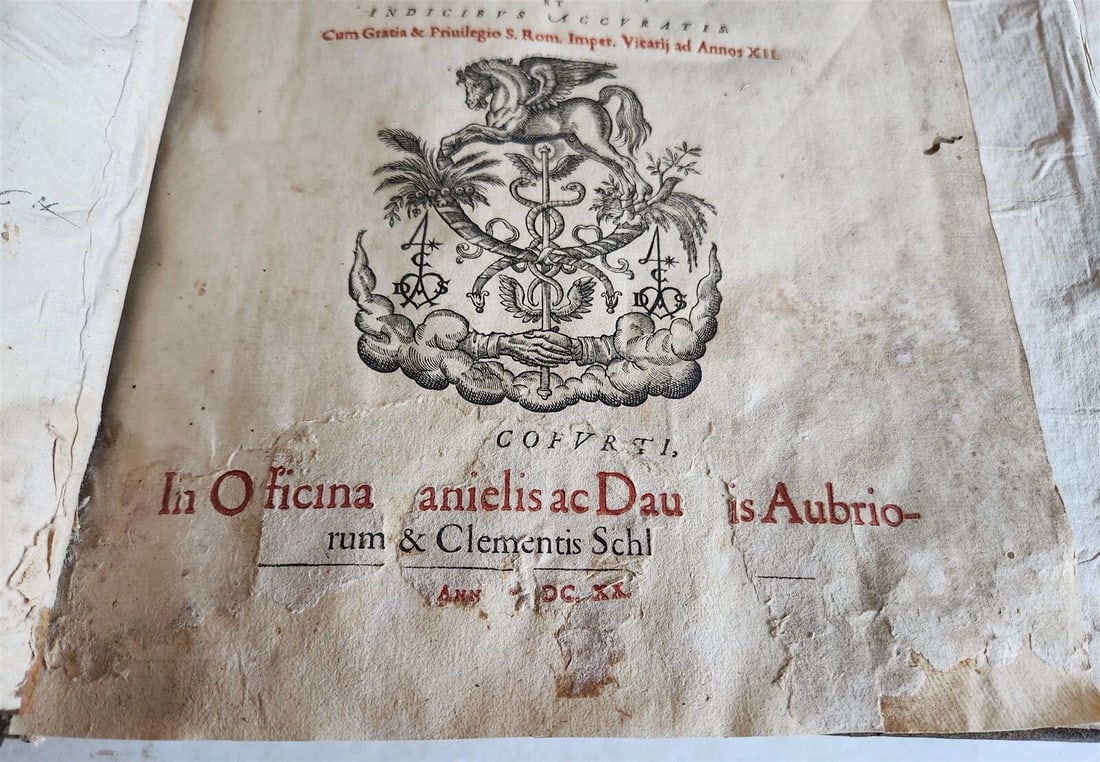 ET
INDICIBVS ACCVRATIS.
Cum Gratia & Priuilegio S. Rom. Imper. Vicarij ad Annos XII.
D A S
D A S
COFVRTI,
In Officina anielis ac Dau is Aubrio-
rum & Clementis Schl
ANN DC. XX